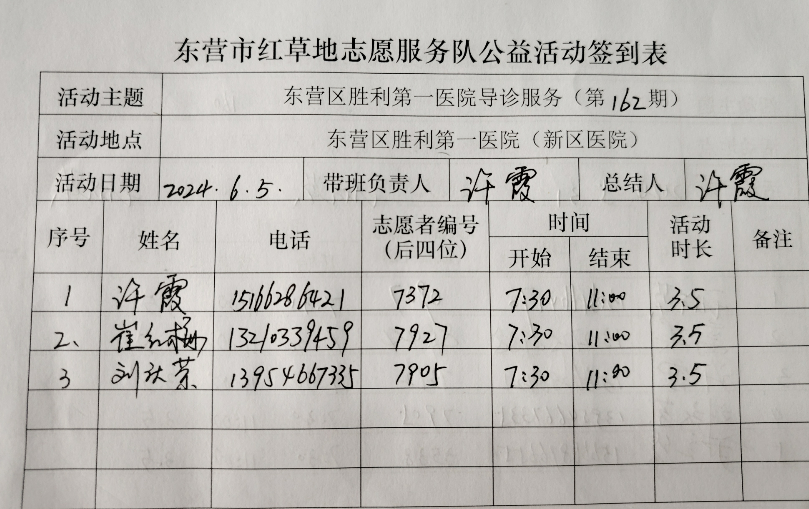 东营市红草地志愿服务队公益活动签到表
活动主题 东营区胜利第一医院导诊服务（第162期）
活动地点 东营区胜利第一医院（新区医院）
活动日期 2024.6.5. 带班负责人 许霞 总结人 许霞
序号 姓名 电话 志愿者编号（后四位） 时间 开始 结束 活动时长 备注
1 许霞 15166286421 7372 7:30 11:00 3.5
2、 崔红梅 13210339459 7927 7:30 11:00 3.5
3 刘 荣 13954667335 7905 7:30 11:00 3.5